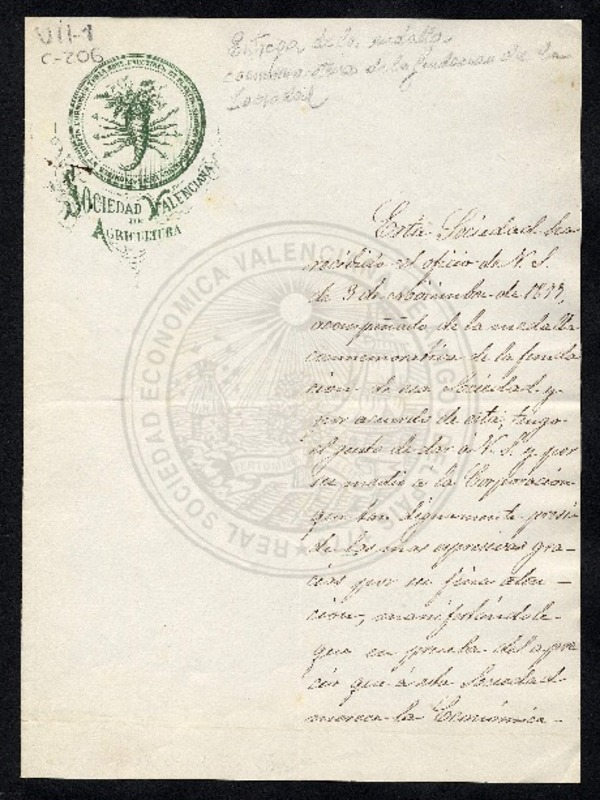 VII-1
C-206
Entrega de la medalla
conmemorativa de la fundacion de la
Sociedad
SOCIEDAD VALENCIANA
DE
AGRICULTURA
Esta Sociedad ha
recibido el oficio de V. S.
de 3 de Noviembre de 1877,
acompañado de la medalla
conmemorativa de la funda
cion de esa Sociedad y
por acuerdo de esta, tengo
el gusto de dar a V. S. y por
su medio a la Corporación
que tan dignamente presi-
de las mas espresivas gra-
cias por su fina aten-
cion, manifestándole
que en prueba del apre
cio que á esta Sociedad
merece la Económica
REAL SOCIEDAD ECONOMICA VALENCIANA